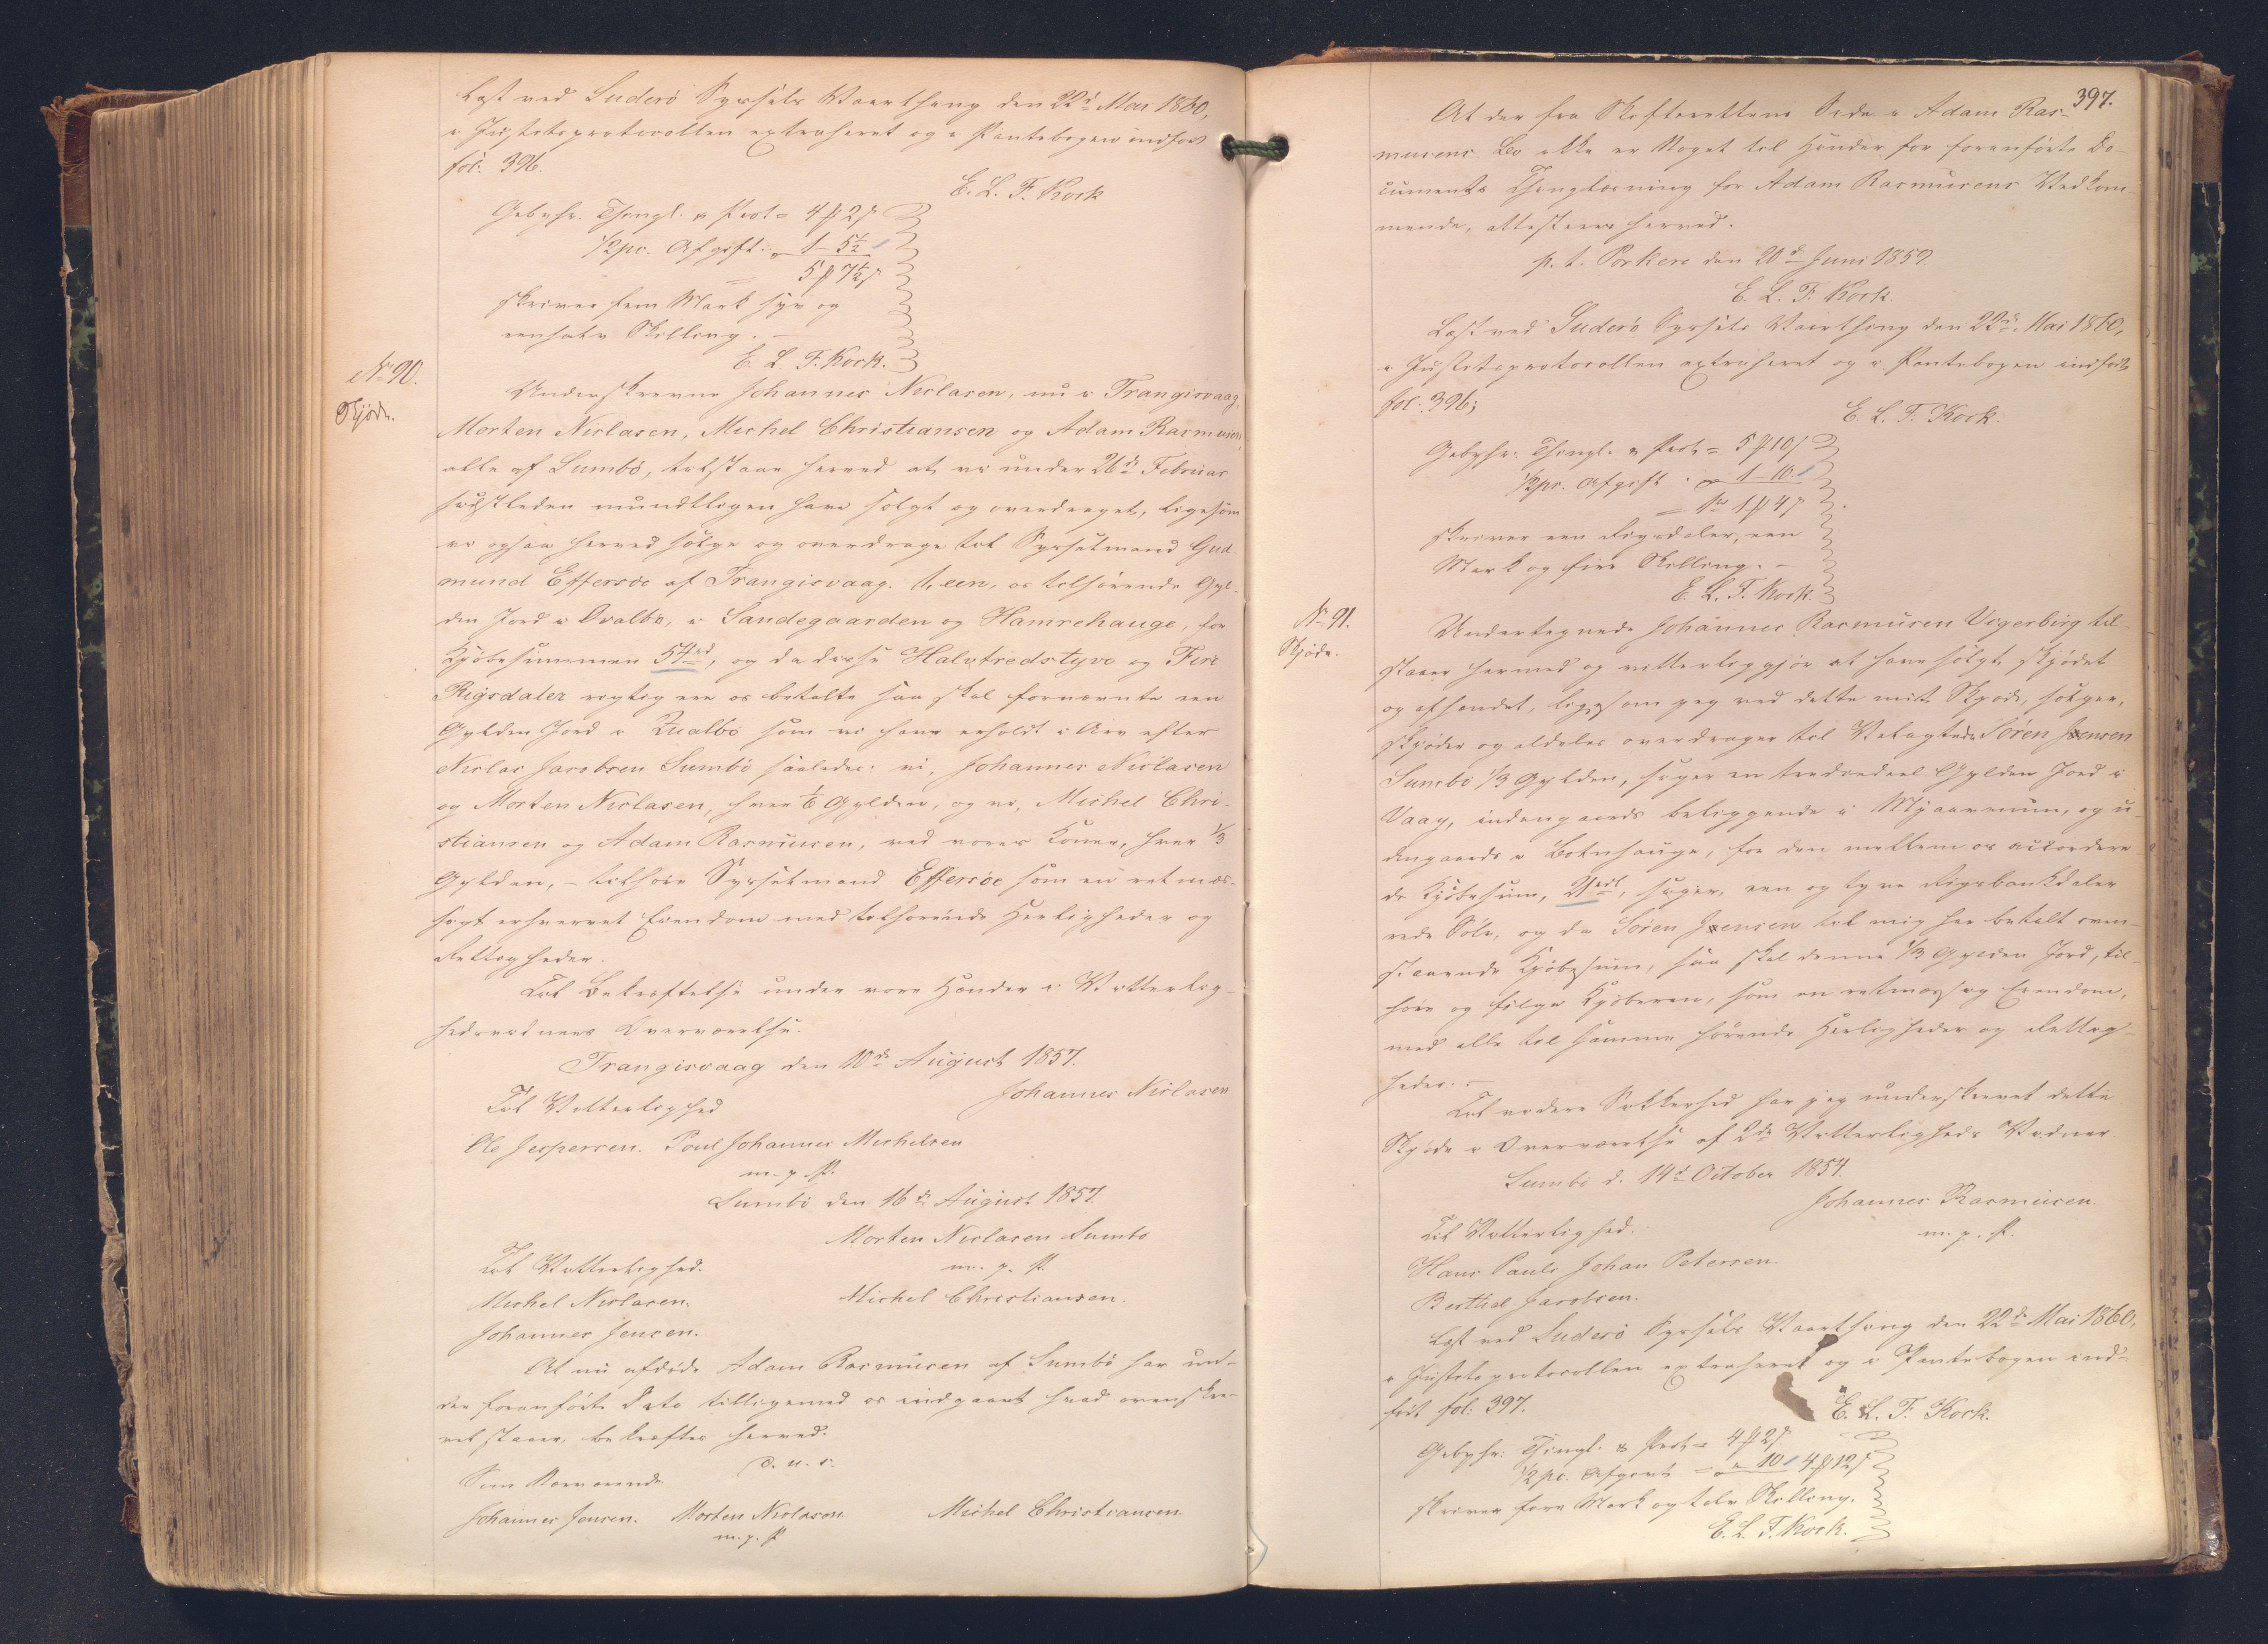 Læst ved Suderø Syssels Vaarthing den 22d Mai 1860,
i Justitsprotocollen extraheret og i Pantebogen indført
fol. 396.
E. L. F. Kock
Gebyhr. Thingl. & Prot = 4 ₻ 2 s
1/2 pc. Afgift: " 1 - 5 1/2
= 5 ₻ 7 1/2 s
skriver fem Mark syv og
een halv Skilling. -
E. L. F. Kock.
No 90.
Skjøde.
Underskrevne Johannes Niclasen, nu i Trangisvaag,
Morten Niclasen, Michel Christiansen og Adam Rasmusen
alle af Sumbø, tilstaae herved at vi under 26de Februar
sidstleden mundtligen have solgt og overdraget, ligesom
vi ogsaa herved sælge og overdrage til Sysselmand Gud-
mund Effersøe af Trangisvaag. 1, een, os tilhørende Gyl-
den Jord i Qvalbø, i Sandegaarden og Hamrehauge, for
Kjøbesummen 54rd, og da disse Halvtredstyve og Fire
Rigsdaler rigtig ere os betalte saa skal fornævnte een
Gylden Jord i Qualbø som vi have erholdt i Arv efter
Niclas Jacobsen Sumbø saaledes: vi, Johannes Niclasen
og Morten Niclasen, hver 1/6 Gylden, og vi, Michel Chri-
stiansen og Adam Rasmusen, ved vores Koner, hver 1/3
Gylden, - tilhøre Sysselmand Effersøe som en retmæs-
sigt erhvervet Eiendom med tilhørende Herligheder og
Rettigheder.
Til Bekræftelse under vore Hænder i Vitterlig-
hedsvidners Overværelse.
Trangisvaag den 10de August 1857.
Johannes Niclasen
Til Vitterlighed
Ole Jespersen. Poul Johannes Michelsen
m. p. P.
Sumbø den 16de August 1857.
Morten Niclasen Sumbø
m. p. P.
Til Vitterlighed.
Michel Niclasen.
Michel Christiansen.
Johannes Jensen.
At nu afdøde Adam Rasmusen af Sumbø har un-
der foranførte Dato tilligemed os indgaaet hvad ovenskre-
vet staaer, bekræftes herved.
D. u. s.
Som Nærværende
Johannes Jensen. Morten Niclasen Michel Christiansen.
m. p. P
397.
At der fra Skifterettens Side i Adam Ras-
musens Bo ikke er Noget til Hinder for foranførte Do-
cuments Thinglæsning for Adam Rasmusens Vedkom-
mende, attesteres herved.
p. t. Porkere den 20d Juni 1859.
E. L. F. Kock.
Læst ved Suderø Syssels Vaarthing den 22d Mai 1860,
i Justitsprotocollen extraheret og i Pantebogen indført
fol: 396;
E. L. F. Kock.
Gebyhr. Thingl. & Prot = 5 ₻ 10 s
1/2 pc. Afgift " 1 - 10
= 1rd 1 ₻ 4 s
skriver een Rigsdaler, een
Mark og fire Skilling. -
E. L. F. Kock.
No 91.
Skjøde.
Undertegnede Johannes Rasmusen Vigerbirg til-
staaer hermed og vitterliggjør at have solgt, skjødet
og afhændet, ligesom jeg ved dette mit Skjøde, sælger,
skjøder og aldeles overdrager til Velagtede Søren Jensen
Sumbø 1/3 Gylden, siger en trediedeel Gylden Jord i
Vaag, indengaards beliggende i , og u-
dengaards i Botnhauge, for den mellem os accordere-
de Kjøbesum, 21rdl, siger, een og tyve Rigsbankdaler
rede Sølv, og da Søren Jensen til mig har betalt oven-
staaende Kjøbesum, saa skal denne 1/3 Gylden Jord, til-
høre og følge Kjøberen, som en retmæssig Eiendom,
med alle til samme hørende Herligheder og Rettig-
heder. -
Til videre Sikkerhed har jeg underskrevet dette
Skjøde i Overværelse af 2de Vitterligheds Vidner.
Sumbø d. 14d October 1854.
Johannes Rasmusen.
Til Vitterlighed.
m. p. P.
Hans Pauli Johan Petersen.
Berthel Jacobsen.
Læst ved Suderø Syssels Vaarthing den 22de Mai 1860,
i Justitsprotocollen extraheret og i Pantebogen ind-
ført fol. 397.
E. L. F. Kock.
Gebyhr: Thingl. & Prot = 4 ₻ 2 s
1/2 pc. Afgivt = " 10 4 ₻ 12 s
skriver fire Mark og tolv Skilling.
E. L. F. Kock.